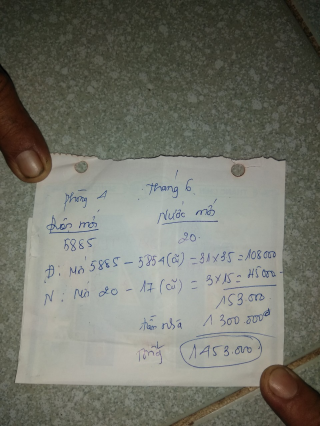 Phòng 4 Tháng 6
Điện mới Nước mới
5885 20
Đ: Mới 5885 - 5854 (cũ) = 31 x 35 = 108000
N: Mới 20 - 17 (cũ) = 3 x 15 = 45000
153.000
tiền nhà 1 300.000đ
Tổng 1453.000